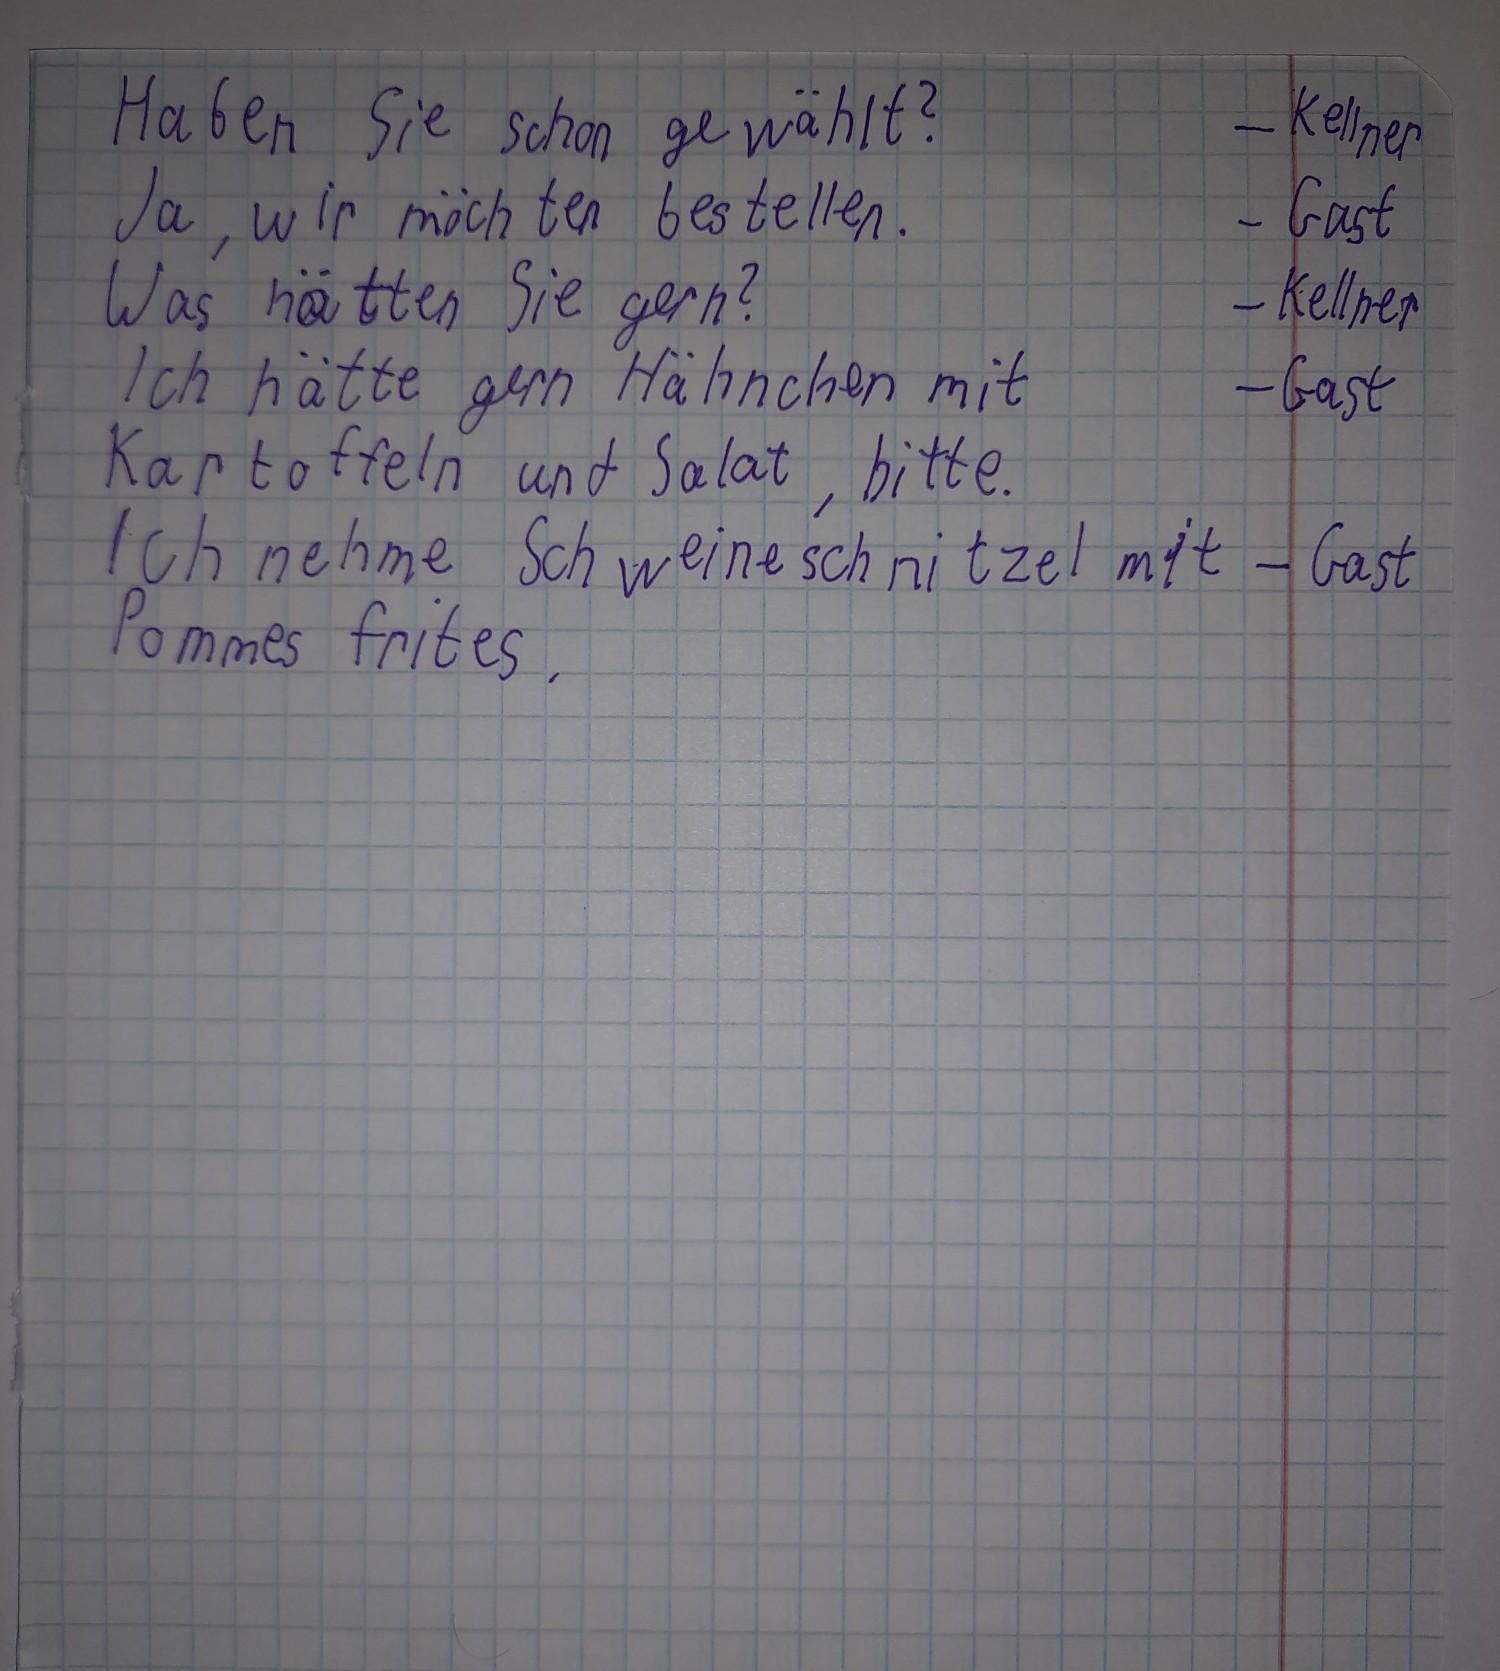 Haben Sie schon gewählt? – Kellner
Ja, wir möchten bestellen. – Gast
Was hätten Sie gern? – Kellner
Ich hätte gern Hähnchen mit – Gast
Kartoffeln und Salat, bitte.
Ich nehme Schweineschnitzel mit – Gast
Pommes frites.